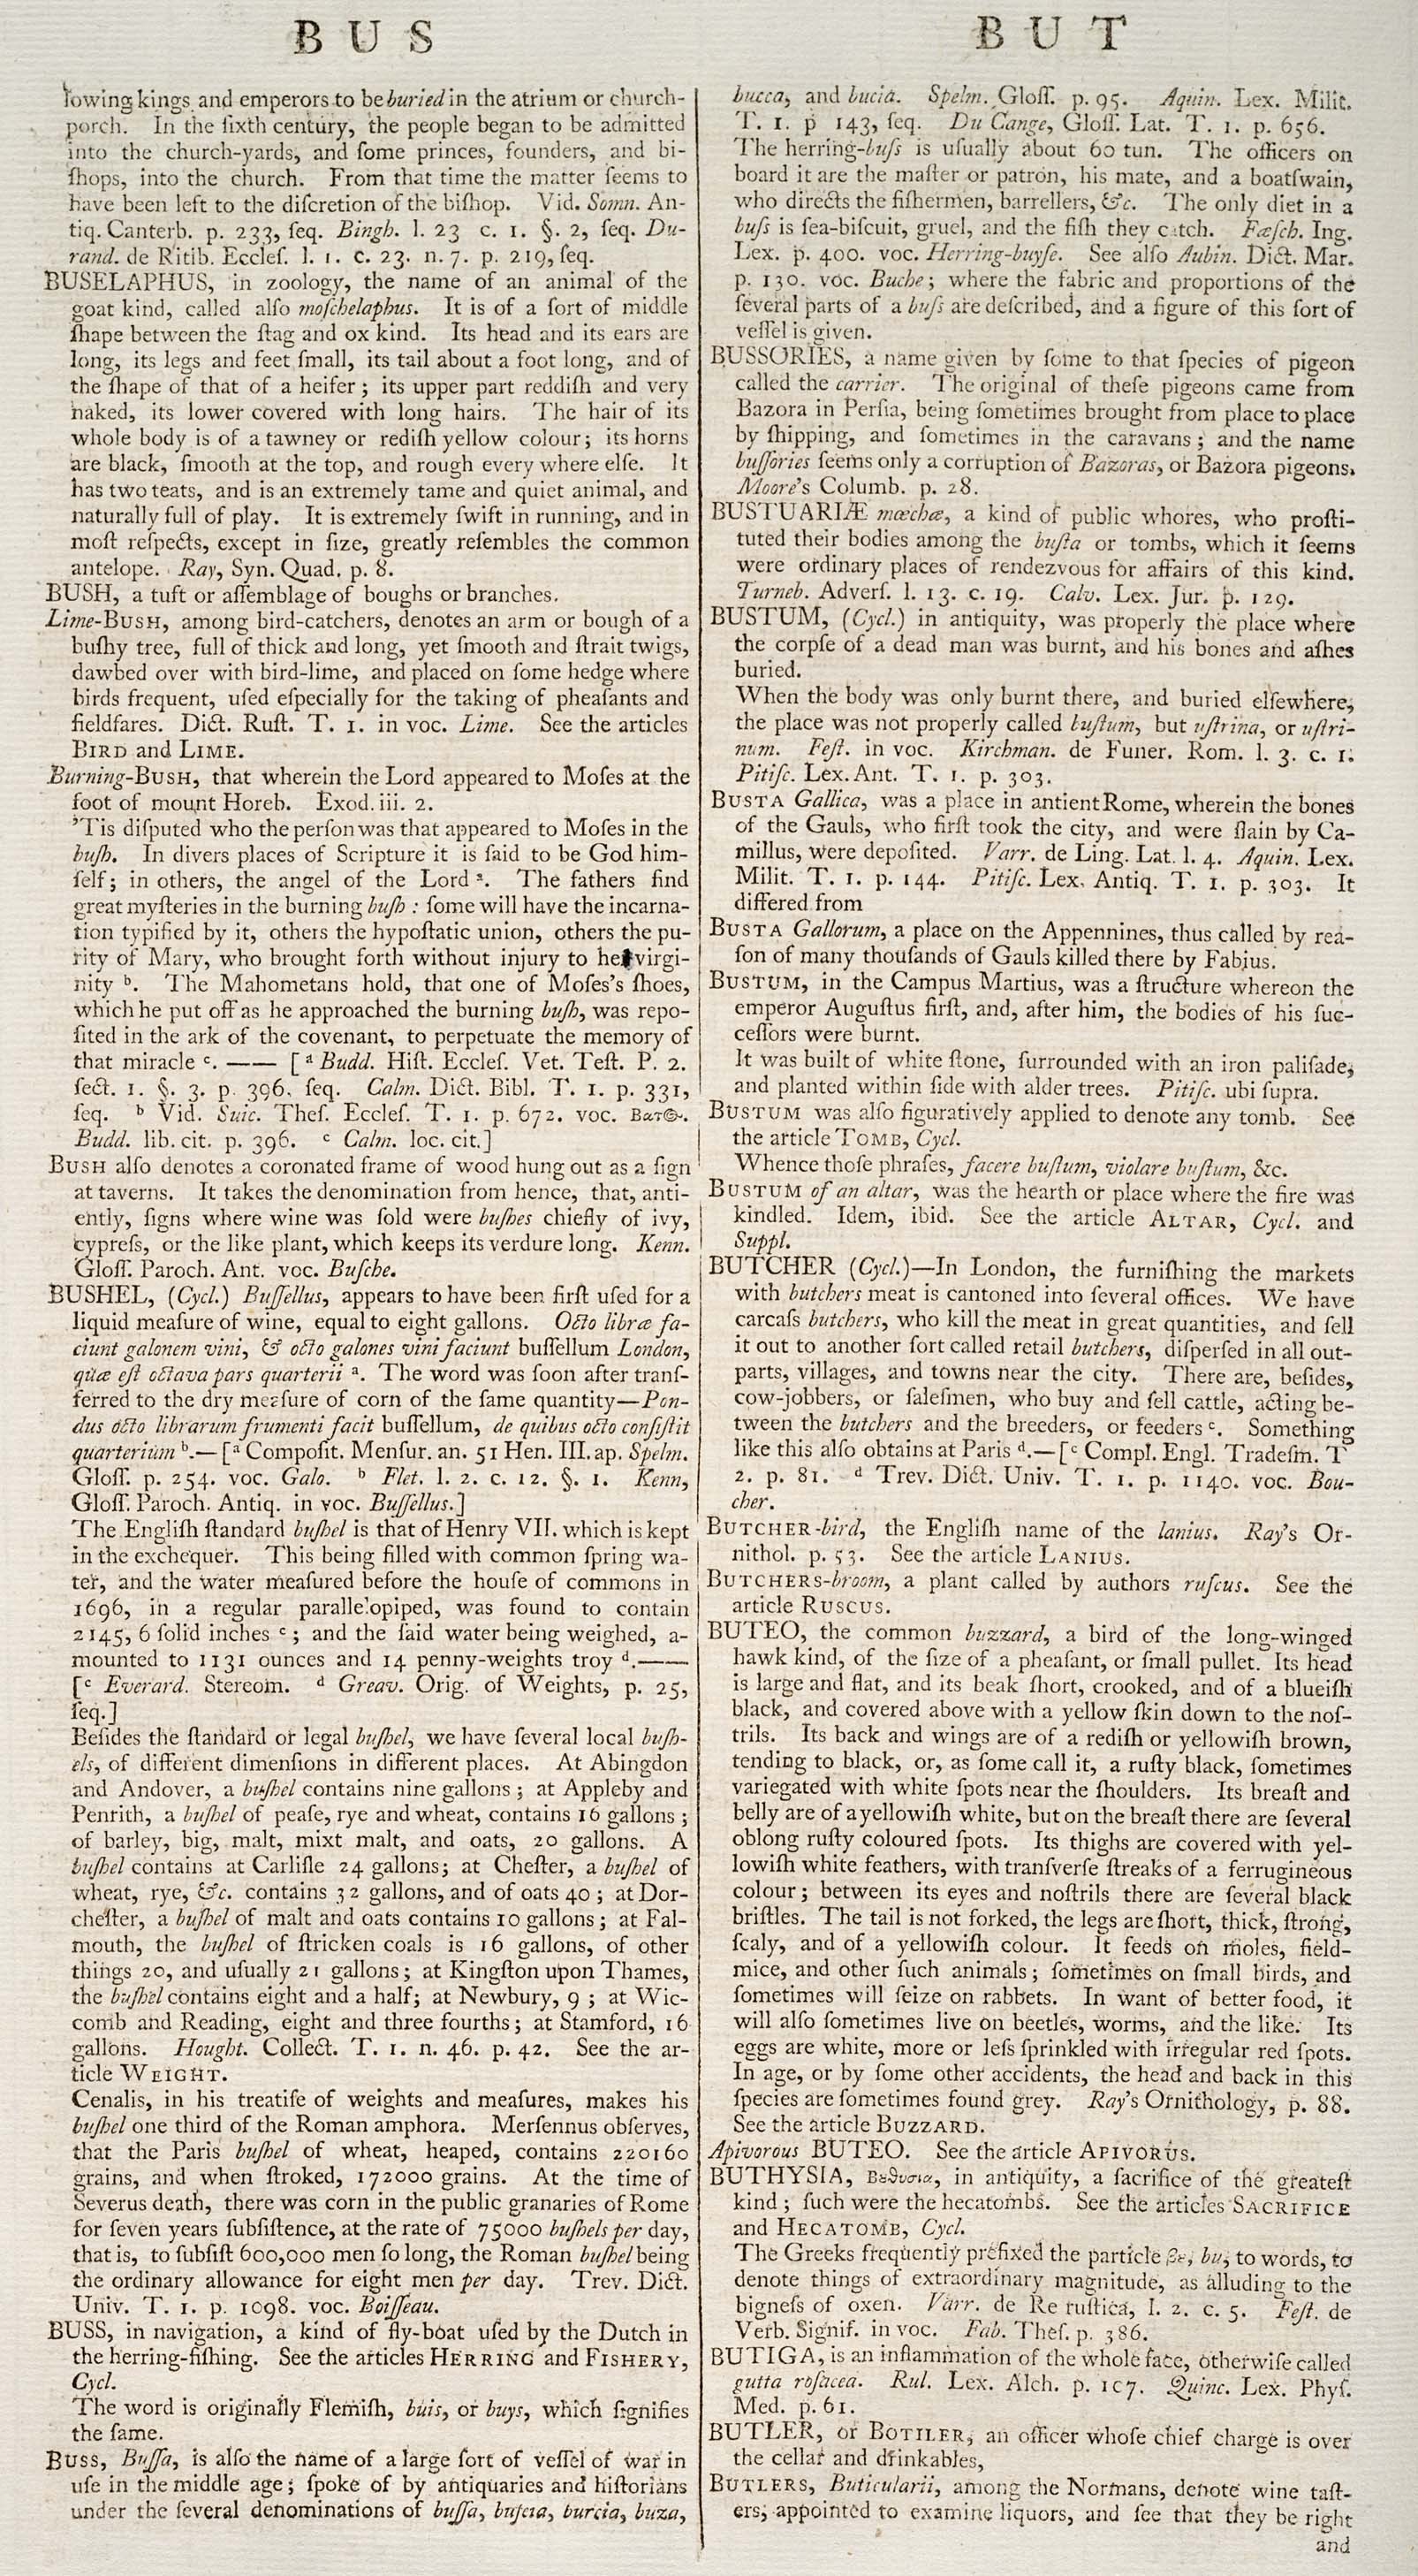 BUS
BUT
lowing kings and emperors to be buried in the atrium or church-
porch. In the ſixth century, the people began to be admitted
into the church-yards, and ſome princes, founders, and bi-
ſhops, into the church. From that time the matter ſeems to
have been left to the diſcretion of the biſhop. Vid. Somn. An-
tiq. Canterb. p. 233, ſeq. Bingh. l. 23 c. 1. §. 2, ſeq. Du-
rand. de Ritib. Eccleſ. l. 1. c. 23. n. 7. p. 219, ſeq.
BUSELAPHUS, in zoology, the name of an animal of the
goat kind, called alſo moſchelaphus. It is of a ſort of middle
ſhape between the ſtag and ox kind. Its head and its ears are
long, its legs and feet ſmall, its tail about a foot long, and of
the ſhape of that of a heifer; its upper part reddiſh and very
naked, its lower covered with long hairs. The hair of its
whole body is of a tawney or rediſh yellow colour; its horns
are black, ſmooth at the top, and rough every where elſe. It
has two teats, and is an extremely tame and quiet animal, and
naturally full of play. It is extremely ſwift in running, and in
moſt reſpects, except in ſize, greatly reſembles the common
antelope. Ray, Syn. Quad. p. 8.
BUSH, a tuft or aſſemblage of boughs or branches.
Lime-BUSH, among bird-catchers, denotes an arm or bough of a
buſhy tree, full of thick and long, yet ſmooth and ſtrait twigs,
dawbed over with bird-lime, and placed on ſome hedge where
birds frequent, uſed eſpecially for the taking of pheaſants and
fieldfares. Dict. Ruſt. T. 1. in voc. Lime. See the articles
BIRD and LIME.
Burning-BUSH, that wherein the Lord appeared to Moſes at the
foot of mount Horeb. Exod. iii. 2.
'Tis diſputed who the perſon was that appeared to Moſes in the
buſh. In divers places of Scripture it is ſaid to be God him-
ſelf; in others, the angel of the Lord ᵃ. The fathers find
great myſteries in the burning buſh: ſome will have the incarna-
tion typified by it, others the hypoſtatic union, others the pu-
rity of Mary, who brought forth without injury to her virgi-
nity ᵇ. The Mahometans hold, that one of Moſes's ſhoes,
which he put off as he approached the burning buſh, was repo-
ſited in the ark of the covenant, to perpetuate the memory of
that miracle ᶜ. —— [ᵃ Budd. Hiſt. Eccleſ. Vet. Teſt. P. 2.
ſect. 1. §. 3. p. 396. ſeq. Calm. Dict. Bibl. T. 1. p. 331,
ſeq. ᵇ Vid. Suic. Theſ. Eccleſ. T. 1. p. 672. voc. Βατος.
Budd. lib. cit. p. 396. ᶜ Calm. loc. cit.]
BUSH alſo denotes a coronated frame of wood hung out as a ſign
at taverns. It takes the denomination from hence, that, anti-
ently, ſigns where wine was ſold were buſhes chiefly of ivy,
cypreſs, or the like plant, which keeps its verdure long. Kenn.
Gloſſ. Paroch. Ant. voc. Buſche.
BUSHEL, (Cycl.) Buſſellus, appears to have been firſt uſed for a
liquid meaſure of wine, equal to eight gallons. Octo libræ fa-
ciunt galonem vini, & octo galones vini faciunt buſſellum London,
quæ eſt octava pars quarterii ᵃ. The word was ſoon after tranſ-
ferred to the dry meaſure of corn of the ſame quantity—Pon-
dus octo librarum frumenti facit buſſellum, de quibus octo conſiſtit
quarterium ᵇ.—[ᵃ Compoſit. Menſur. an. 51 Hen. III. ap. Spelm.
Gloſſ. p. 254. voc. Galo. ᵇ Flet. l. 2. c. 12. §. 1. Kenn,
Gloſſ. Paroch. Antiq. in voc. Buſſellus.]
The Engliſh ſtandard buſhel is that of Henry VII. which is kept
in the exchequer. This being filled with common ſpring wa-
ter, and the water meaſured before the houſe of commons in
1696, in a regular parallelopiped, was found to contain
2145, 6 ſolid inches ᶜ; and the ſaid water being weighed, a-
mounted to 1131 ounces and 14 penny-weights troy ᵈ.——
[ᶜ Everard. Stereom. ᵈ Greav. Orig. of Weights, p. 25,
ſeq.]
Beſides the ſtandard or legal buſhel, we have ſeveral local buſh-
els, of different dimenſions in different places. At Abingdon
and Andover, a buſhel contains nine gallons; at Appleby and
Penrith, a buſhel of peaſe, rye and wheat, contains 16 gallons;
of barley, big, malt, mixt malt, and oats, 20 gallons. A
buſhel contains at Carliſle 24 gallons; at Cheſter, a buſhel of
wheat, rye, &c. contains 32 gallons, and of oats 40; at Dor-
cheſter, a buſhel of malt and oats contains 10 gallons; at Fal-
mouth, the buſhel of ſtricken coals is 16 gallons, of other
things 20, and uſually 21 gallons; at Kingſton upon Thames,
the buſhel contains eight and a half; at Newbury, 9; at Wic-
comb and Reading, eight and three fourths; at Stamford, 16
gallons. Hought. Collect. T. 1. n. 46. p. 42. See the ar-
ticle WEIGHT.
Cenalis, in his treatiſe of weights and meaſures, makes his
buſhel one third of the Roman amphora. Merſennus obſerves,
that the Paris buſhel of wheat, heaped, contains 220160
grains, and when ſtroked, 172000 grains. At the time of
Severus death, there was corn in the public granaries of Rome
for ſeven years ſubſiſtence, at the rate of 75000 buſhels per day,
that is, to ſubſiſt 600,000 men ſo long, the Roman buſhel being
the ordinary allowance for eight men per day. Trev. Dict.
Univ. T. 1. p. 1098. voc. Boiſſeau.
BUSS, in navigation, a kind of fly-boat uſed by the Dutch in
the herring-fiſhing. See the articles HERRING and FISHERY,
Cycl.
The word is originally Flemiſh, buis, or buys, which ſignifies
the ſame.
BUSS, Buſſa, is alſo the name of a large ſort of veſſel of war in
uſe in the middle age; ſpoke of by antiquaries and hiſtorians
under the ſeveral denominations of buſſa, buſcia, burcia, buza,
bucca, and bucia. Spelm. Gloſſ. p. 95. Aquin. Lex. Milit.
T. 1. p 143, ſeq. Du Cange, Gloſſ. Lat. T. 1. p. 656.
The herring-buſs is uſually about 60 tun. The officers on
board it are the maſter or patron, his mate, and a boatſwain,
who directs the fiſhermen, barrellers, &c. The only diet in a
buſs is ſea-biſcuit, gruel, and the fiſh they catch. Fæſch. Ing.
Lex. p. 400. voc. Herring-buyſe. See alſo Aubin. Dict. Mar.
p. 130. voc. Buche; where the fabric and proportions of the
ſeveral parts of a buſs are deſcribed, and a figure of this ſort of
veſſel is given.
BUSSORIES, a name given by ſome to that ſpecies of pigeon
called the carrier. The original of theſe pigeons came from
Bazora in Perſia, being ſometimes brought from place to place
by ſhipping, and ſometimes in the caravans; and the name
buſſories ſeems only a corruption of Bazoras, or Bazora pigeons.
Moore's Columb. p. 28.
BUSTUARIÆ mœchæ, a kind of public whores, who proſti-
tuted their bodies among the buſta or tombs, which it ſeems
were ordinary places of rendezvous for affairs of this kind.
Turneb. Adverſ. l. 13. c. 19. Calv. Lex. Jur. p. 129.
BUSTUM, (Cycl.) in antiquity, was properly the place where
the corpſe of a dead man was burnt, and his bones and aſhes
buried.
When the body was only burnt there, and buried elſewhere,
the place was not properly called buſtum, but uſtrina, or uſtri-
num. Feſt. in voc. Kirchman. de Funer. Rom. l. 3. c. 1.
Pitiſc. Lex. Ant. T. 1. p. 303.
BUSTA Gallica, was a place in antient Rome, wherein the bones
of the Gauls, who firſt took the city, and were ſlain by Ca-
millus, were depoſited. Varr. de Ling. Lat. l. 4. Aquin. Lex.
Milit. T. 1. p. 144. Pitiſc. Lex. Antiq. T. 1. p. 303. It
differed from
BUSTA Gallorum, a place on the Appennines, thus called by rea-
ſon of many thouſands of Gauls killed there by Fabius.
BUSTUM, in the Campus Martius, was a ſtructure whereon the
emperor Auguſtus firſt, and, after him, the bodies of his ſuc-
ceſſors were burnt.
It was built of white ſtone, ſurrounded with an iron paliſade,
and planted within ſide with alder trees. Pitiſc. ubi ſupra.
BUSTUM was alſo figuratively applied to denote any tomb. See
the article TOMB, Cycl.
Whence thoſe phraſes, facere buſtum, violare buſtum, &c.
BUSTUM of an altar, was the hearth or place where the fire was
kindled. Idem, ibid. See the article ALTAR, Cycl. and
Suppl.
BUTCHER (Cycl.)—In London, the furniſhing the markets
with butchers meat is cantoned into ſeveral offices. We have
carcaſs butchers, who kill the meat in great quantities, and ſell
it out to another ſort called retail butchers, diſperſed in all out-
parts, villages, and towns near the city. There are, beſides,
cow-jobbers, or ſaleſmen, who buy and ſell cattle, acting be-
tween the butchers and the breeders, or feeders ᶜ. Something
like this alſo obtains at Paris ᵈ.—[ᶜ Compl. Engl. Tradeſm. T
2. p. 81. ᵈ Trev. Dict. Univ. T. 1. p. 1140. voc. Bou-
cher.
BUTCHER-bird, the Engliſh name of the lanius. Ray's Or-
nithol. p. 53. See the article LANIUS.
BUTCHERS-broom, a plant called by authors ruſcus. See the
article RUSCUS.
BUTEO, the common buzzard, a bird of the long-winged
hawk kind, of the ſize of a pheaſant, or ſmall pullet. Its head
is large and flat, and its beak ſhort, crooked, and of a blueiſh
black, and covered above with a yellow ſkin down to the noſ-
trils. Its back and wings are of a rediſh or yellowiſh brown,
tending to black, or, as ſome call it, a ruſty black, ſometimes
variegated with white ſpots near the ſhoulders. Its breaſt and
belly are of a yellowiſh white, but on the breaſt there are ſeveral
oblong ruſty coloured ſpots. Its thighs are covered with yel-
lowiſh white feathers, with tranſverſe ſtreaks of a ferrugineous
colour; between its eyes and noſtrils there are ſeveral black
briſtles. The tail is not forked, the legs are ſhort, thick, ſtrong,
ſcaly, and of a yellowiſh colour. It feeds on moles, field-
mice, and other ſuch animals; ſometimes on ſmall birds, and
ſometimes will ſeize on rabbets. In want of better food, it
will alſo ſometimes live on beetles, worms, and the like. Its
eggs are white, more or leſs ſprinkled with irregular red ſpots.
In age, or by ſome other accidents, the head and back in this
ſpecies are ſometimes found grey. Ray's Ornithology, p. 88.
See the article BUZZARD.
Apivorous BUTEO. See the article APIVORUS.
BUTHYSIA, Βȣθυσια, in antiquity, a ſacrifice of the greateſt
kind; ſuch were the hecatombs. See the articles SACRIFICE
and HECATOMB, Cycl.
The Greeks frequently prefixed the particle βȣ, bu, to words, to
denote things of extraordinary magnitude, as alluding to the
bigneſs of oxen. Varr. de Re ruſtica, l. 2. c. 5. Feſt. de
Verb. Signif. in voc. Fab. Theſ. p. 386.
BUTIGA, is an inflammation of the whole face, otherwiſe called
gutta roſacea. Rul. Lex. Alch. p. 107. Quinc. Lex. Phyſ.
Med. p. 61.
BUTLER, or BOTILER, an officer whoſe chief charge is over
the cellar and drinkables,
BUTLERS, Buticularii, among the Normans, denote wine taſt-
ers, appointed to examine liquors, and ſee that they be right
and